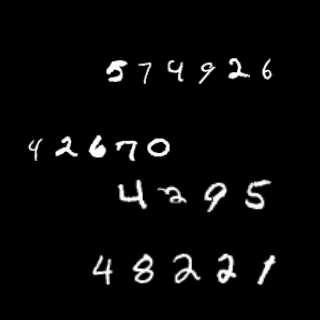 574926
42670
4295
48221